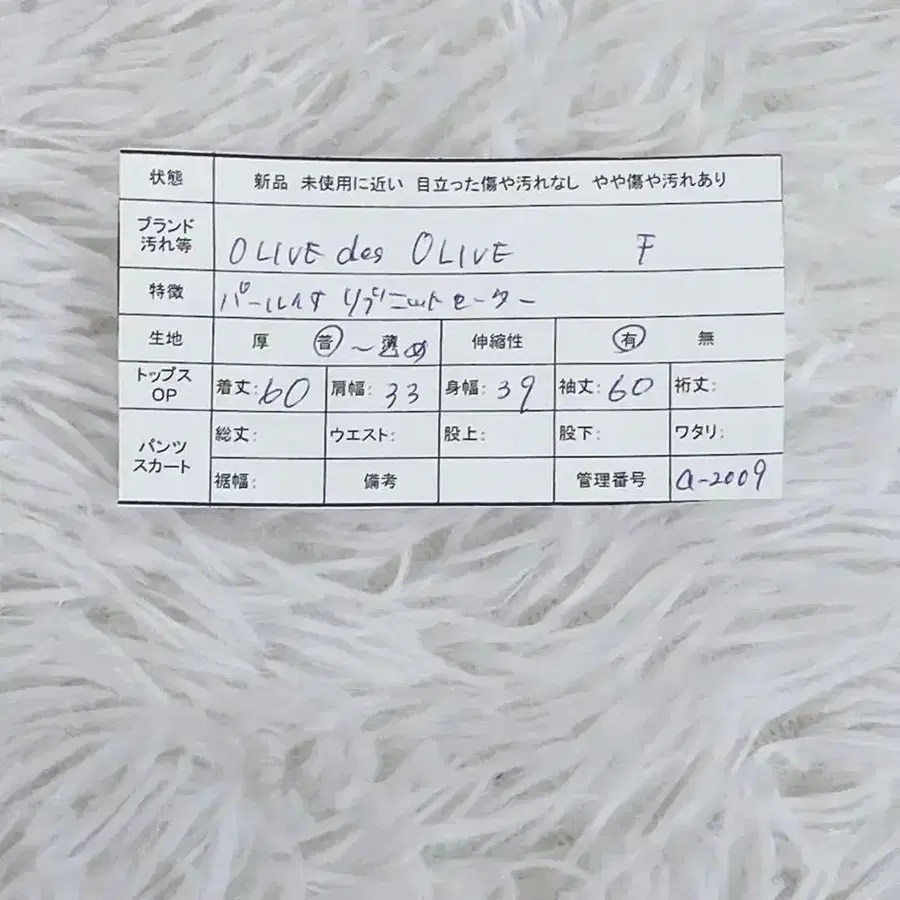 状態 新品 未使用に近い 目立った傷や汚れなし やや傷や汚れあり
ブランド
汚れ等 OLIVE des OLIVE F
特徴 パール付 リブニットセーター
生地 厚 普 ~ 薄め 伸縮性 有 無
トップス
OP 着丈: 60 肩幅: 33 身幅: 39 袖丈: 60 裄丈:
パンツ
スカート 総丈: ウエスト: 股上: 股下: ワタリ:
裾幅: 備考 管理番号 a-2009